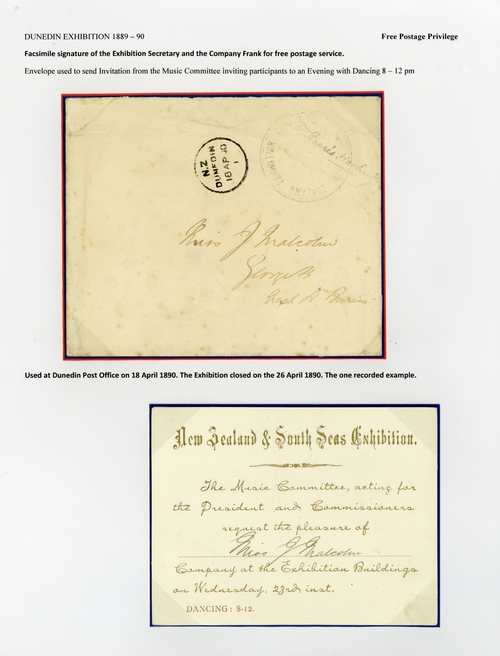 DUNEDIN EXHIBITION 1889 – 90 Free Postage Privilege
Facsimile signature of the Exhibition Secretary and the Company Frank for free postage service.
Envelope used to send Invitation from the Music Committee inviting participants to an Evening with Dancing 8 – 12 pm
N.Z
DUNEDIN
18 AP 90
1
ZEALAND
Miss J Malcolm
George St
Used at Dunedin Post Office on 18 April 1890. The Exhibition closed on the 26 April 1890. The one recorded example.
New Zealand & South Seas Exhibition.
The Music Committee, acting for
the President and Commissioners
request the pleasure of
Miss J Malcolm
Company at the Exhibition Buildings
on Wednesday, 23rd inst.
DANCING: 8-12.